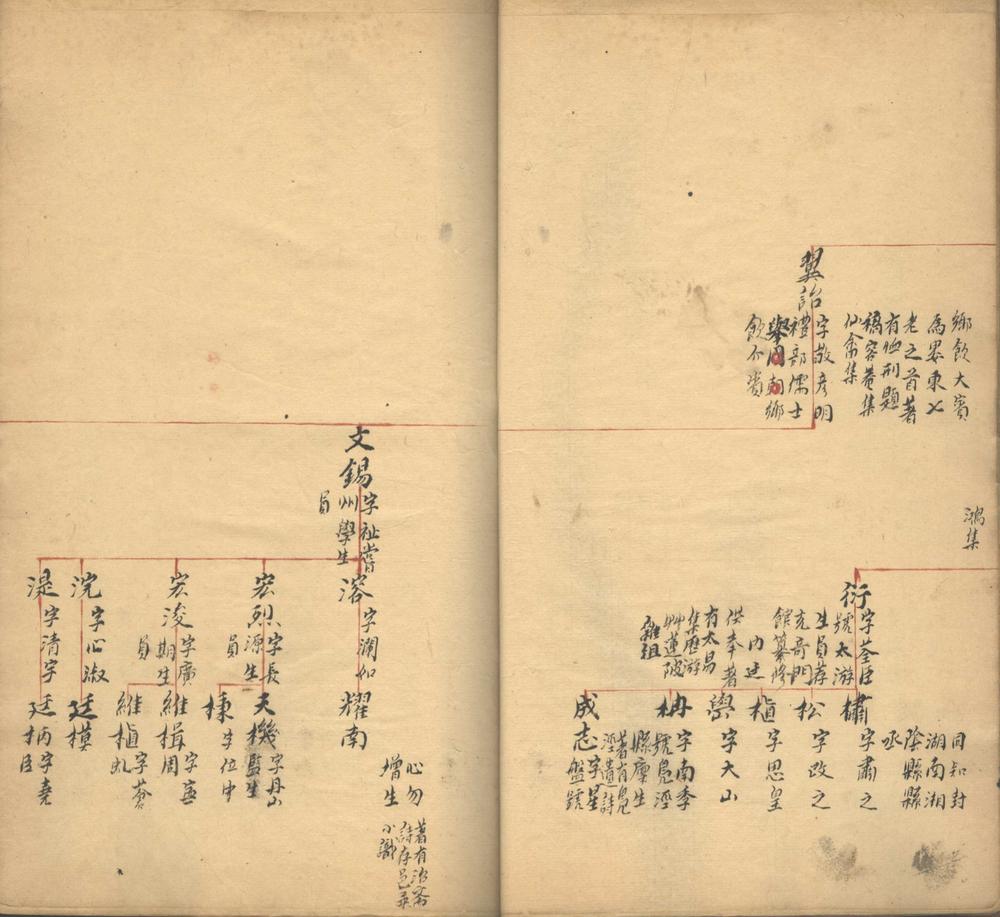 鄉飲大賓
為婁東七
老之首著
有他刑題
稿容菴集
仙禽集
翼詒
字敬彥明
禮部儒士
鄉
飲介賓
鴻集
衍
字荃臣
號太游
生員薦
充奇門
館纂脩
內廷
供奉著
有太易
集歷游
艸蓮陂
雜組
橚
字肅之
同知封
湖南湘
陰縣縣
丞
松
字改之
楨
字思皇
字大山
柟
字南季
號鳧涇
縣廩生
著有鳧
涇遺詩
成志
字星
盤號
文錫
字祉嘗
州學生
員
溶
字瀾如
耀南
心勿
增生
著有治齋
詩存邑乘
小識
宏烈
字長
源生
員
天機
字丹山
監生
棟
字位中
宏浚
字廣
期生
員
維楫
字
周
維楨
字蒼
虬
浣
字心淑
廷模
湜
字清宇
廷柄
字堯
臣